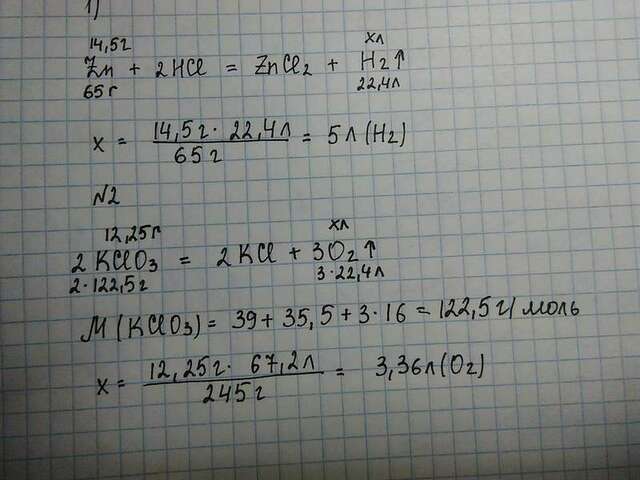 1)
14,5г xл
Zn + 2HCl = ZnCl₂ + H₂↑
65г 22,4л
x = 14,5г · 22,4л / 65г = 5л (H₂)
N2
12,25г xл
2KClO₃ = 2KCl + 3O₂↑
2·122,5г 3·22,4л
M(KClO₃) = 39 + 35,5 + 3·16 = 122,5г/моль
x = 12,25г · 67,2л / 245г = 3,36л (O₂)